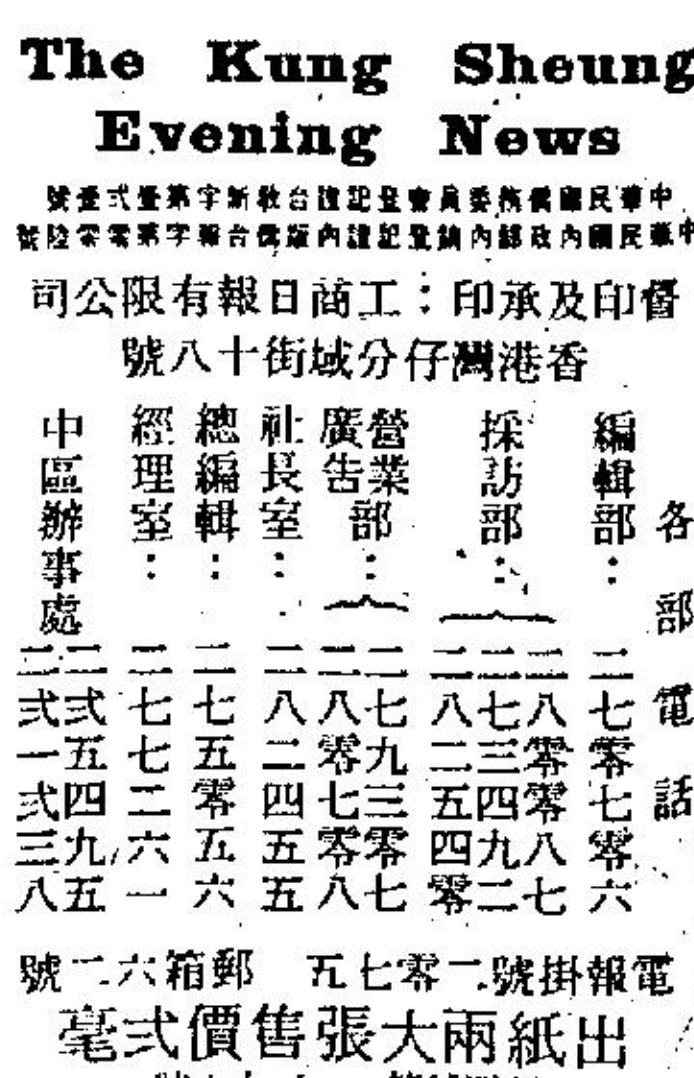 The Kung Sheung
Evening News
中華民國僑務委員會登記證台教新字第壹弍壹號
中華民國內政部內銷登記證內版僑台報字第零零陸號
督印及承印：工商日報有限公司
香港灣仔分域街十八號
各部電話
編輯部：二七零七零六
採訪部：二八零零八七
二七三四九二
二八二五四零
營業廣告部：二七九三零七
二八零七零八
社長室：二八二四五五
總編輯：二七五零五六
經理室：二七七二六一
中區辦事處二弍五四九五
二弍一弍三八
電報掛號二零七五 郵箱六二號
出紙兩大張售價弍毫